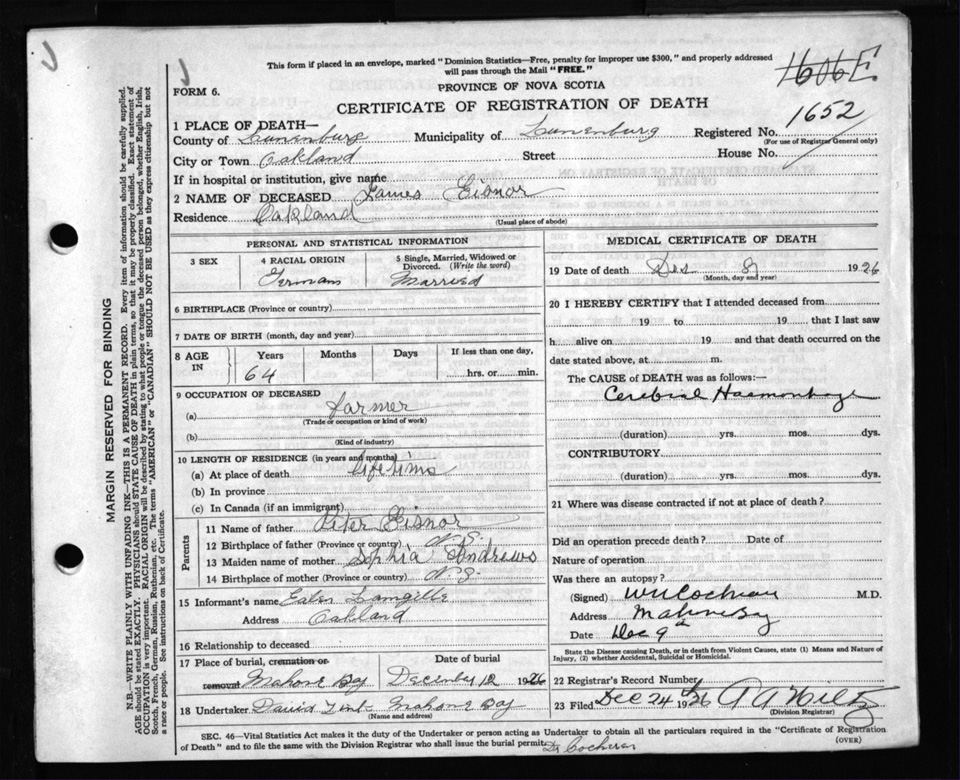 This form if placed in an envelope, marked "Dominion Statistics—Free, penalty for improper use $300," and properly addressed
will pass through the Mail "FREE."
1606 E
FORM 6.
PROVINCE OF NOVA SCOTIA
CERTIFICATE OF REGISTRATION OF DEATH
1652
1 PLACE OF DEATH—
County of Lunenburg Municipality of Lunenburg Registered No.
(For use of Registrar General only)
City or Town Oakland Street House No.
If in hospital or institution, give name
2 NAME OF DECEASED James Eisnor
Residence Oakland
(Usual place of abode)
PERSONAL AND STATISTICAL INFORMATION
3 SEX 4 RACIAL ORIGIN 5 Single, Married, Widowed or
Divorced. (Write the word)
German Married
6 BIRTHPLACE (Province or country)
7 DATE OF BIRTH (month, day and year)
8 AGE IN Years Months Days If less than one day,
64 hrs. or min.
9 OCCUPATION OF DECEASED
(a) farmer
(Trade or occupation or kind of work)
(b)
(Kind of industry)
10 LENGTH OF RESIDENCE (in years and months)
(a) At place of death lifetime
(b) In province
(c) In Canada (if an immigrant)
Parents
11 Name of father Peter Eisnor
12 Birthplace of father (Province or country) N.S.
13 Maiden name of mother Sophia Andrews
14 Birthplace of mother (Province or country) N.S.
15 Informant's name Langille
Address Oakland
16 Relationship to deceased
17 Place of burial, cremation or Date of burial
removal Mahone Bay December 12 1926
18 Undertaker David Mahone Bay
(Name and address)
MEDICAL CERTIFICATE OF DEATH
19 Date of death Dec 8 1926
(Month, day and year)
20 I HEREBY CERTIFY that I attended deceased from
19 to 19 that I last saw
h alive on 19 and that death occurred on the
date stated above, at m.
The CAUSE of DEATH was as follows:—
Cerebral Haemorrhage
(duration) yrs. mos. dys.
CONTRIBUTORY
(duration) yrs. mos. dys.
21 Where was disease contracted if not at place of death?
Did an operation precede death? Date of
Nature of operation
Was there an autopsy?
(Signed) Cochran M.D.
Address Mahone Bay
Date Dec 9th
State the Disease causing Death, or in death from Violent Causes, state (1) Means and Nature of
Injury, (2) whether Accidental, Suicidal or Homicidal.
22 Registrar's Record Number
23 Filed Dec 24th 1926
(Division Registrar)
SEC. 46—Vital Statistics Act makes it the duty of the Undertaker or person acting as Undertaker to obtain all the particulars required in the "Certificate of Registration
of Death" and to file the same with the Division Registrar who shall issue the burial permit.
(OVER)
Dr Cochran
MARGIN RESERVED FOR BINDING
N.B.—WRITE PLAINLY WITH UNFADING INK—THIS IS A PERMANENT RECORD. Every item of information should be carefully supplied.
AGE should be stated EXACTLY. PHYSICIANS should STATE CAUSE OF DEATH in plain terms, so that it may be properly classified. Exact statement of
OCCUPATION is very important. RACIAL ORIGIN will be described by stating to what people or tongue the deceased person belonged, whether English, Irish,
Scotch, French, German, Russian, Ruthenian, etc. The terms "AMERICAN" or "CANADIAN" SHOULD NOT BE USED as they express citizenship but not
a race or people. See instructions on back of Certificate.